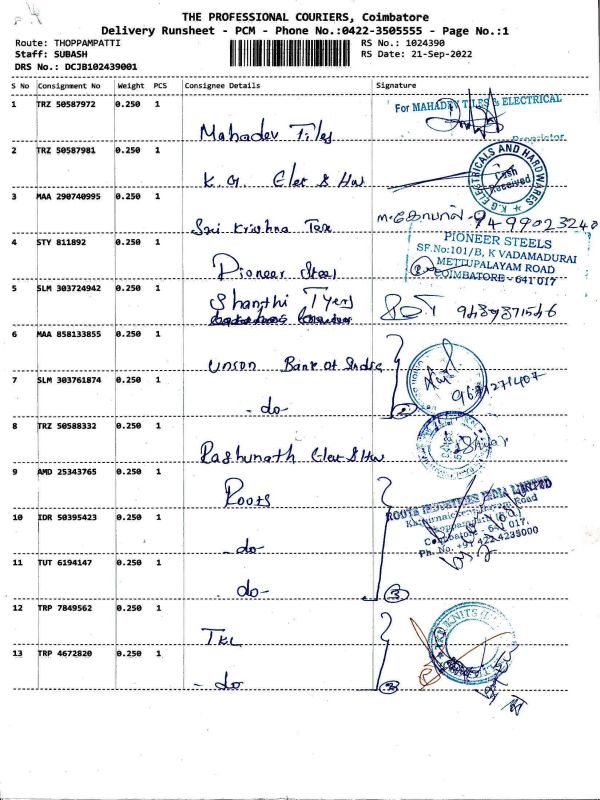 THE PROFESSIONAL COURIERS, Coimbatore
Delivery Runsheet - PCM - Phone No.:0422-3505555 - Page No.:1
Route: THOPPAMPATTI
RS No.: 1024390
Staff: SUBASH
RS Date: 21-Sep-2022
DRS No.: DCJB102439001
S No Consignment No Weight PCS Consignee Details Signature
1 TRZ 50587972 0.250 1
For MAHADEV TILES & ELECTRICAL
Mahadev Tiles
Proprietor
2 TRZ 50587981 0.250 1
K.G. Elet & Hw
K.G ELECTRICALS AND HARDWARES
Cash
Received
3 MAA 290740995 0.250 1
Sri Krishna Tex
4 STY 811892 0.250 1
Pioneer Steel
PIONEER STEELS
SF.No:101/B, K VADAMADURAI
METTUPALAYAM ROAD
COIMBATORE - 641 017
5 SLM 303724942 0.250 1
Shanthi Tyers
6 MAA 858133855 0.250 1
Union Bank of India
7 SLM 303761874 0.250 1
- do -
8 TRZ 50588332 0.250 1
Raghunath Elet & Hw
9 AMD 25343765 0.250 1
Roots
ROOTS INDUSTRIES INDIA LIMITED
Thoppampatti (PO)
Coimbatore - 641 017.
Ph. No. +91 422 4235000
10 IDR 50395423 0.250 1
- do -
11 TUT 6194147 0.250 1
do -
3
12 TRP 7849562 0.250 1
TKL
13 TRP 4672820 0.250 1
- do
2